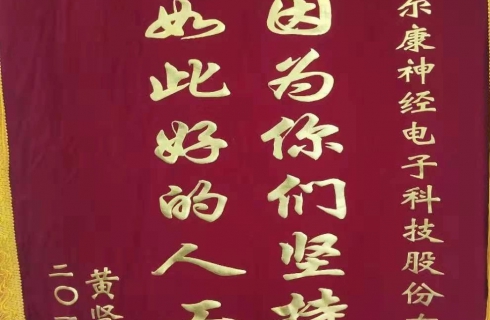 尔康神经电子科技股份有
因为你们坚持
如此好的人工
黄坚
二〇一